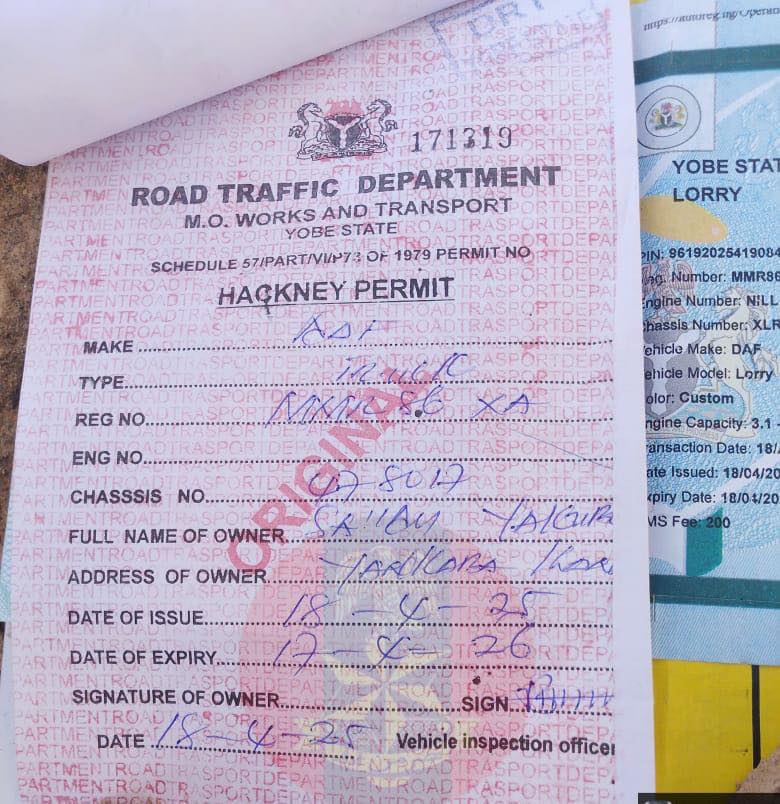 171319
ROAD TRAFFIC DEPARTMENT
M.O. WORKS AND TRANSPORT
YOBE STATE
SCHEDULE 57/PART/VI/P73 OF 1979 PERMIT NO
HACKNEY PERMIT
MAKE
TYPE Truck
REG NO. MMR 86 XA
ENG NO.
CHASSSIS NO. 47-8017
FULL NAME OF OWNER
ADDRESS OF OWNER
DATE OF ISSUE 18-4-25
DATE OF EXPIRY 17-4-26
SIGNATURE OF OWNER SIGN
DATE 18-4-25 Vehicle inspection officer
ORIGINAL
YOBE STAT
LORRY
PIN: 96192025419084
Reg. Number: MMR86
Engine Number: NILL
Chassis Number: XLR
Vehicle Make: DAF
Vehicle Model: Lorry
Color: Custom
Engine Capacity: 3.1 -
Transaction Date: 18/
Date Issued: 18/04/20
Expiry Date: 18/04/20
MS Fee: 200